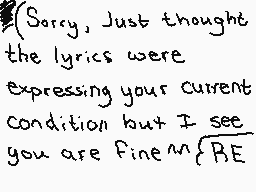 (Sorry, Just thought
the lyrics were
expressing your current
condition but I see
you are fine